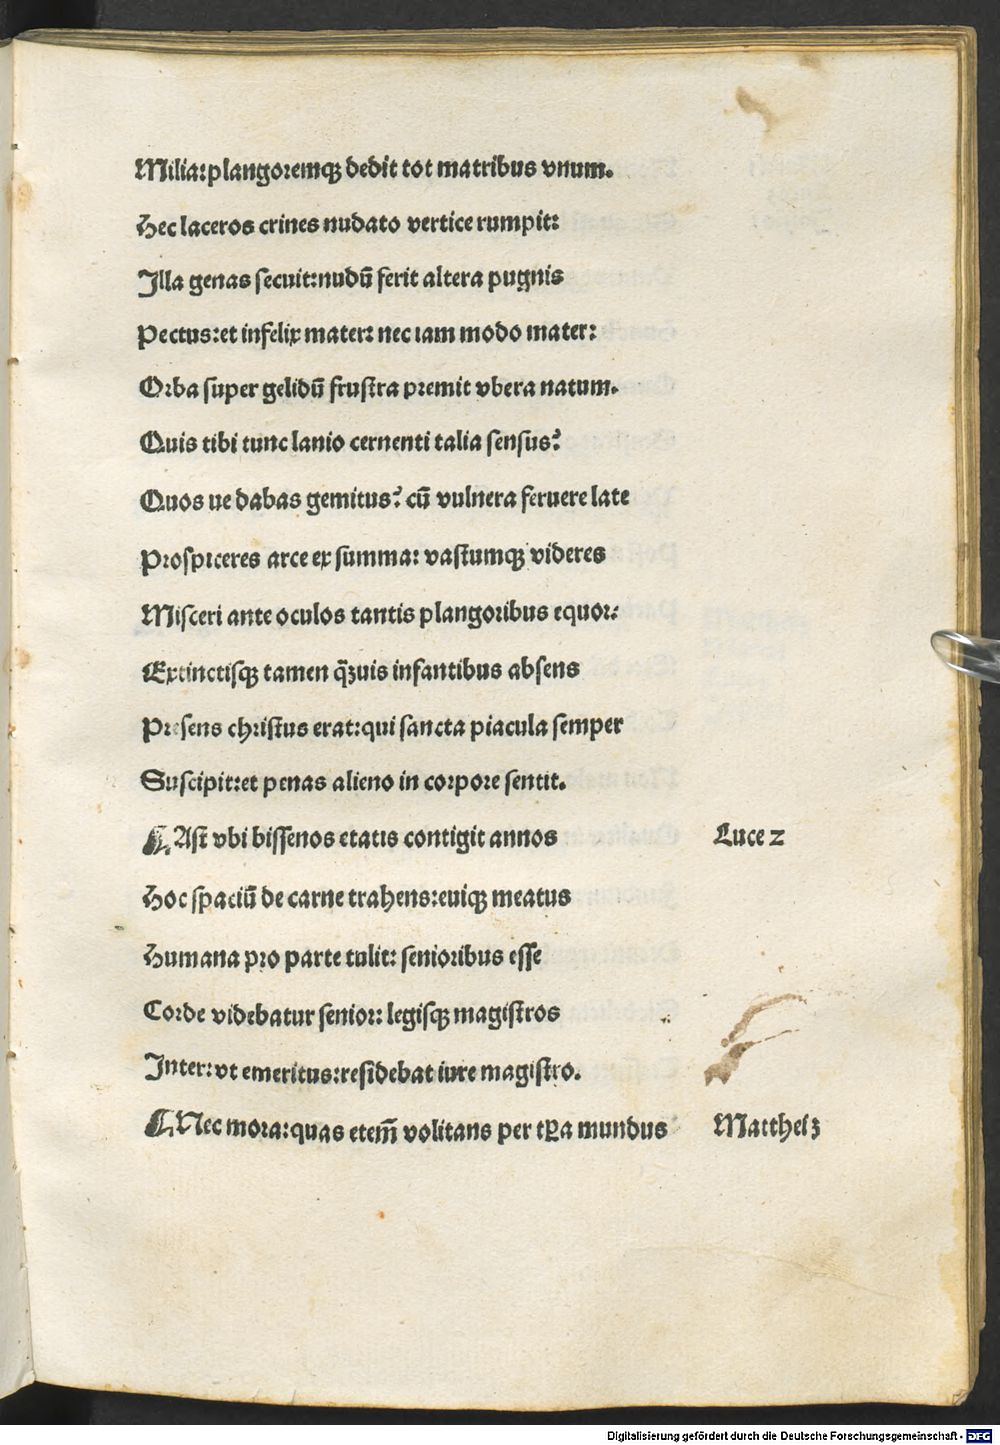 Milia:plangoremqꝫ dedit tot matribus vnum.
Hec laceros crines nudato vertice rumpit:
Illa genas ſecuit:nudū ferit altera pugnis
Pectus:et infelix mater: nec iam modo mater:
Orba ſuper gelidū fruſtra premit vbera natum.
Quis tibi tunc lanio cernenti talia ſenſus?
Quos ue dabas gemitus? cū vulnera feruere late
Proſpiceres arce ex ſumma: vaſtumqꝫ videres
Miſceri ante oculos tantis plangoribus equor:
Extinctiſqꝫ tamen q̄ꝫuis infantibus abſens
Preſens chriſtus erat:qui ſancta piacula ſemper
Suſcipit:et penas alieno in corpore ſentit.
¶ Aſt vbi biſſenos etatis contigit annos Luce 2
Hoc ſpaciū de carne trahens:euiqꝫ meatus
Humana pro parte tulit: ſenioribus eſſe
Corde videbatur ſenior: legiſqꝫ magiſtros
Inter:vt emeritus:reſidebat iure magiſtro.
¶ Nec mora:quas etem̄ volitans per tꝑa mundus Matthei 3
Digitalisierung gefördert durch die Deutsche Forschungsgemeinschaft - DFG